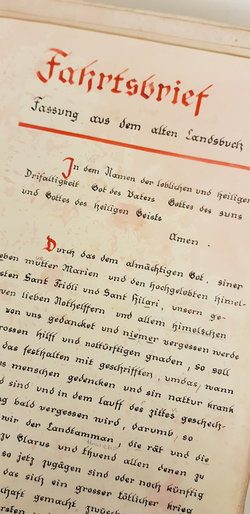 Fahrtsbrief
Fassung aus dem alten Landsbuch
In dem Namen der loblichen und heiligen
Drifaltigkeit Got des Vaters Gottes des suns
und Gottes des heiligen Geists
Amen.
Durch das dem almächtigen Got, siner
eben mütter Marien und den hochgelobten himel-
sten Sant Fridli und Sant Hilari, unsern ge-
ven lieben Nothelffern und allem himelschen
von uns gedancket und niemer vergessen werde
rossen hilff und notürftigen gnaden, so soll
das festhalten mit geschrifften, umbas, wann
s menschen gedencken und sin nattur krank
d sind und in dem lauff des zittes geschech-
ng bald vergessen wird, darumb, so
wir der Landtamman, die rät und die
zu Glarus und thuend allen denen zu
so jetz zugägen sind oder noch künftig
das sich ein grosser tötlicher krieg
schaft gemacht zwüsch